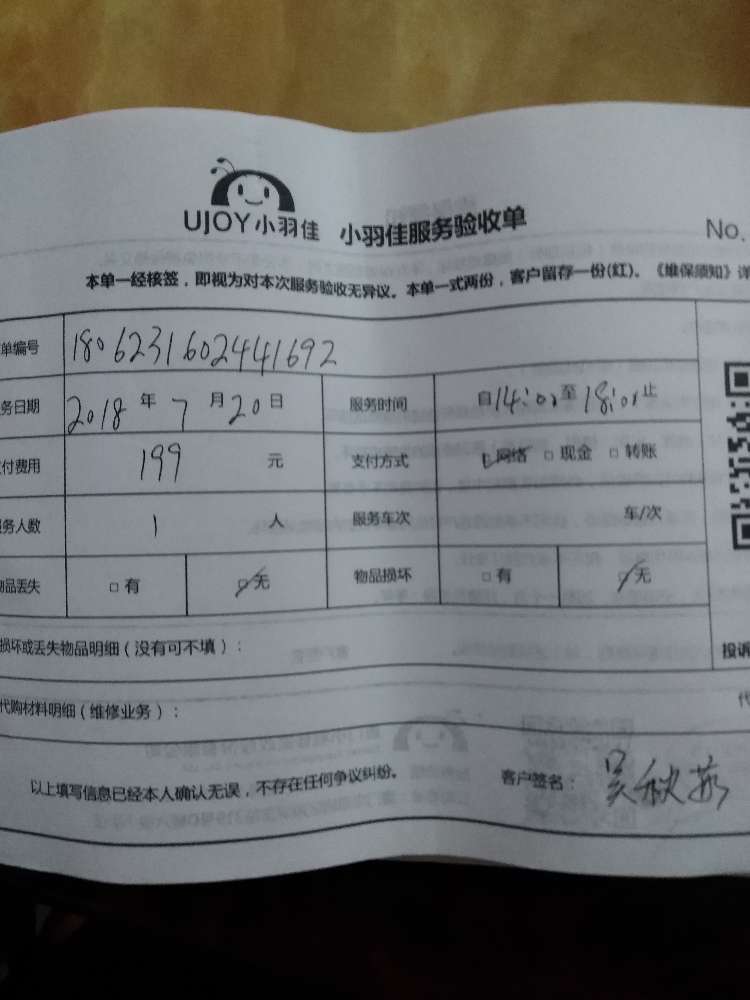 UJOY小羽佳 小羽佳服务验收单 No.
本单一经核签，即视为对本次服务验收无异议。本单一式两份，客户留存一份(红)。《维保须知》详
单编号 180623160244 1692
务日期 2018 年 7 月 20 日 服务时间 自14:00至18:00止
付费用 199 元 支付方式 ☑网络 □现金 □转账
服务人数 1 人 服务车次 车/次
物品丢失 □有 ☑无 物品损坏 □有 ☑无
损坏或丢失物品明细（没有可不填）： 投诉
代购材料明细（维修业务）： 代
以上填写信息已经本人确认无误，不存在任何争议纠纷。 客户签名：吴秋燕